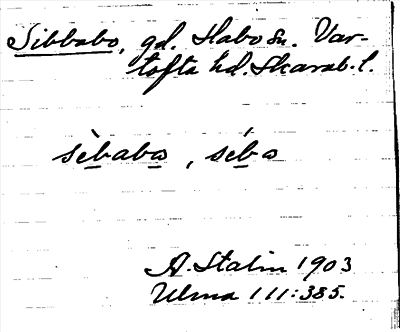 Sibbabo, gd. Habo sn. Var-
tofta hd. Skarab. l.
sèbabo, sébo
A. Stalin 1903
Ulma 111:385.